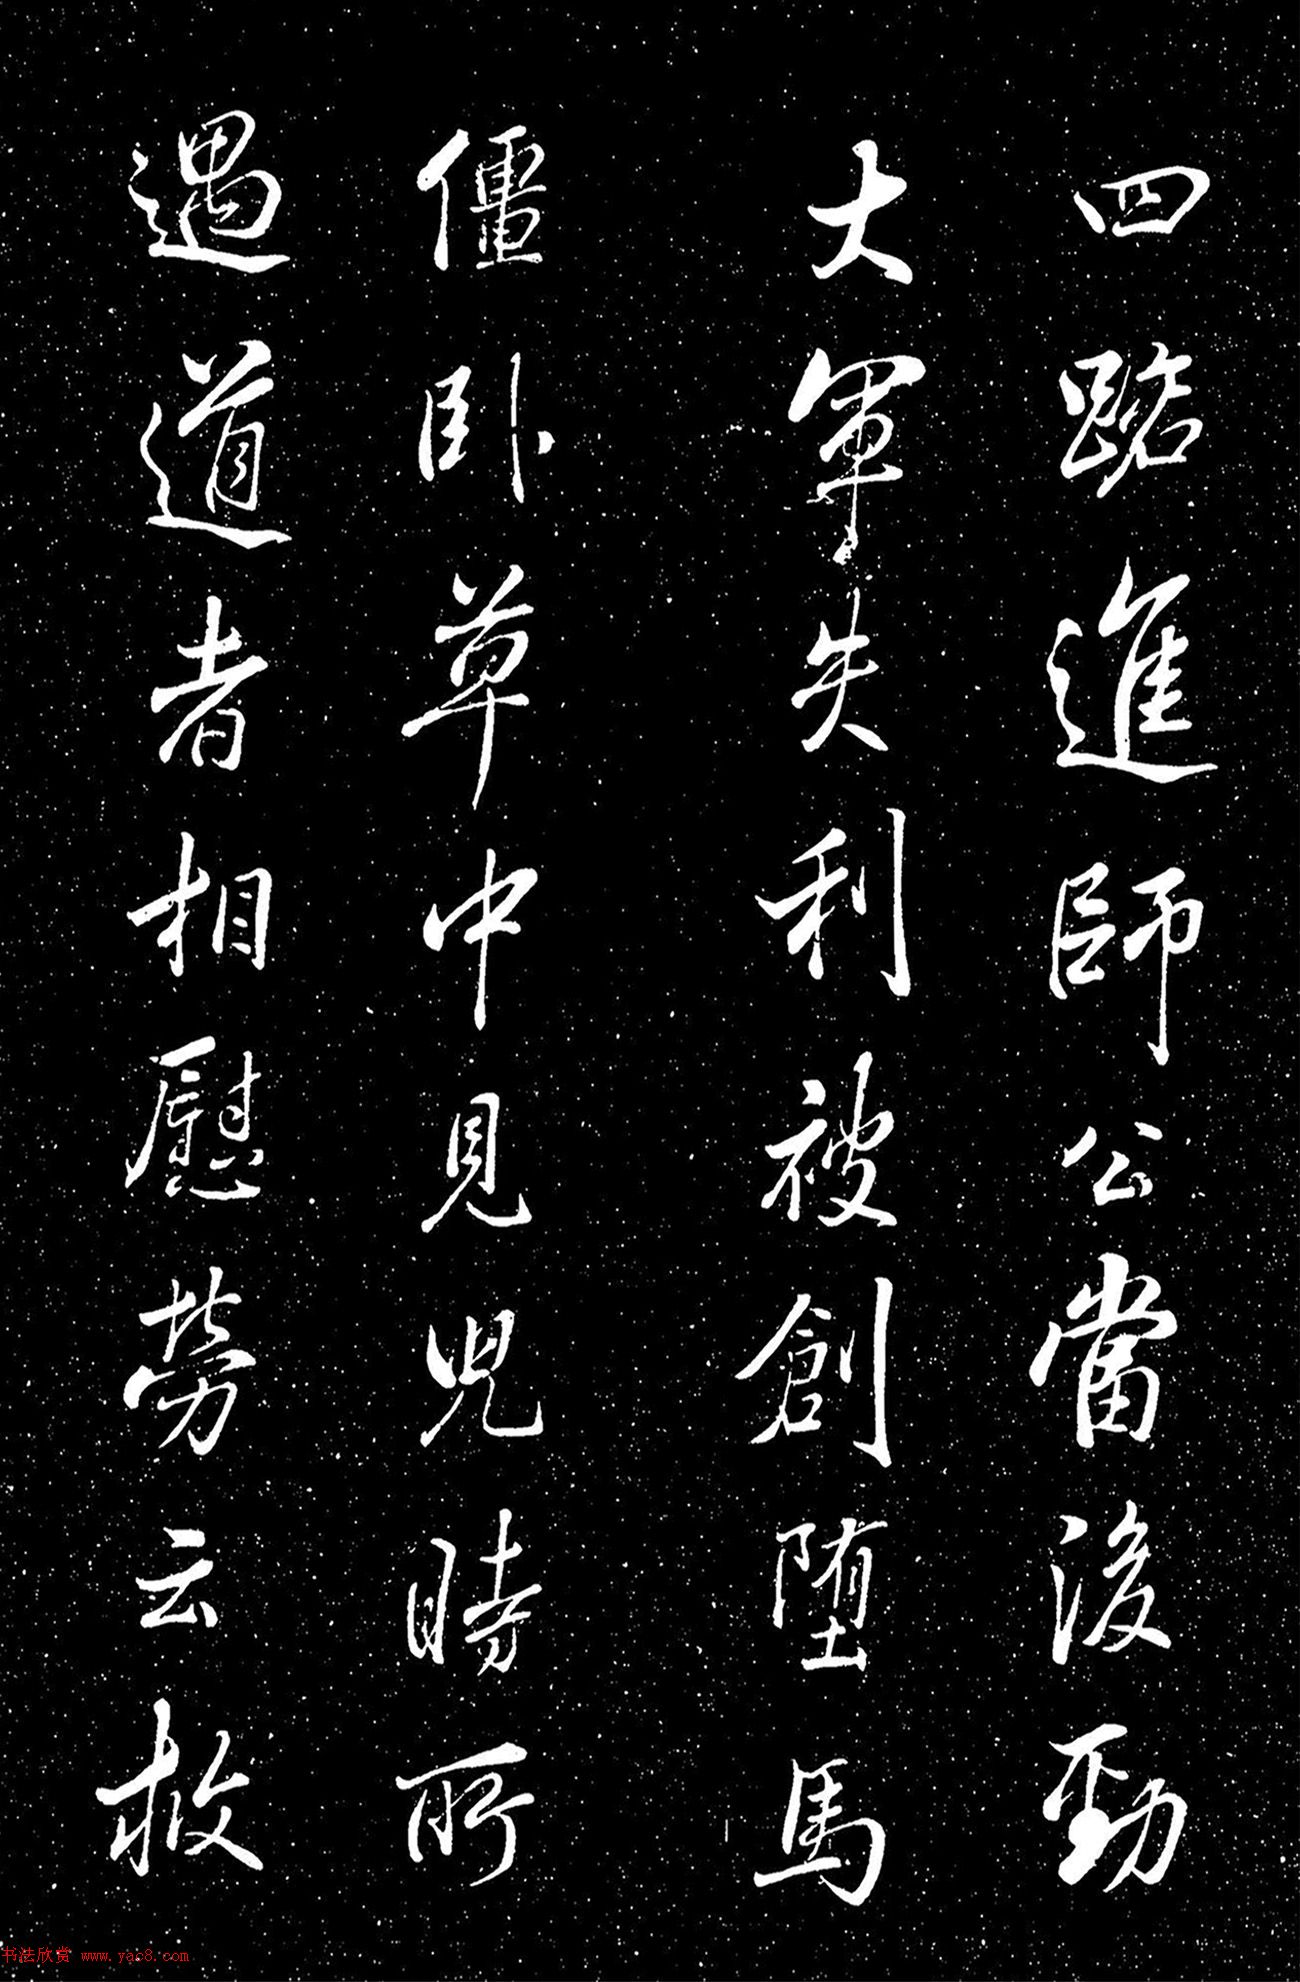 四路進師公當後勁
大軍失利被創堕馬
僵卧草中見兒時所
遇道者相慰劳云救
书法欣赏 www.yac8.com